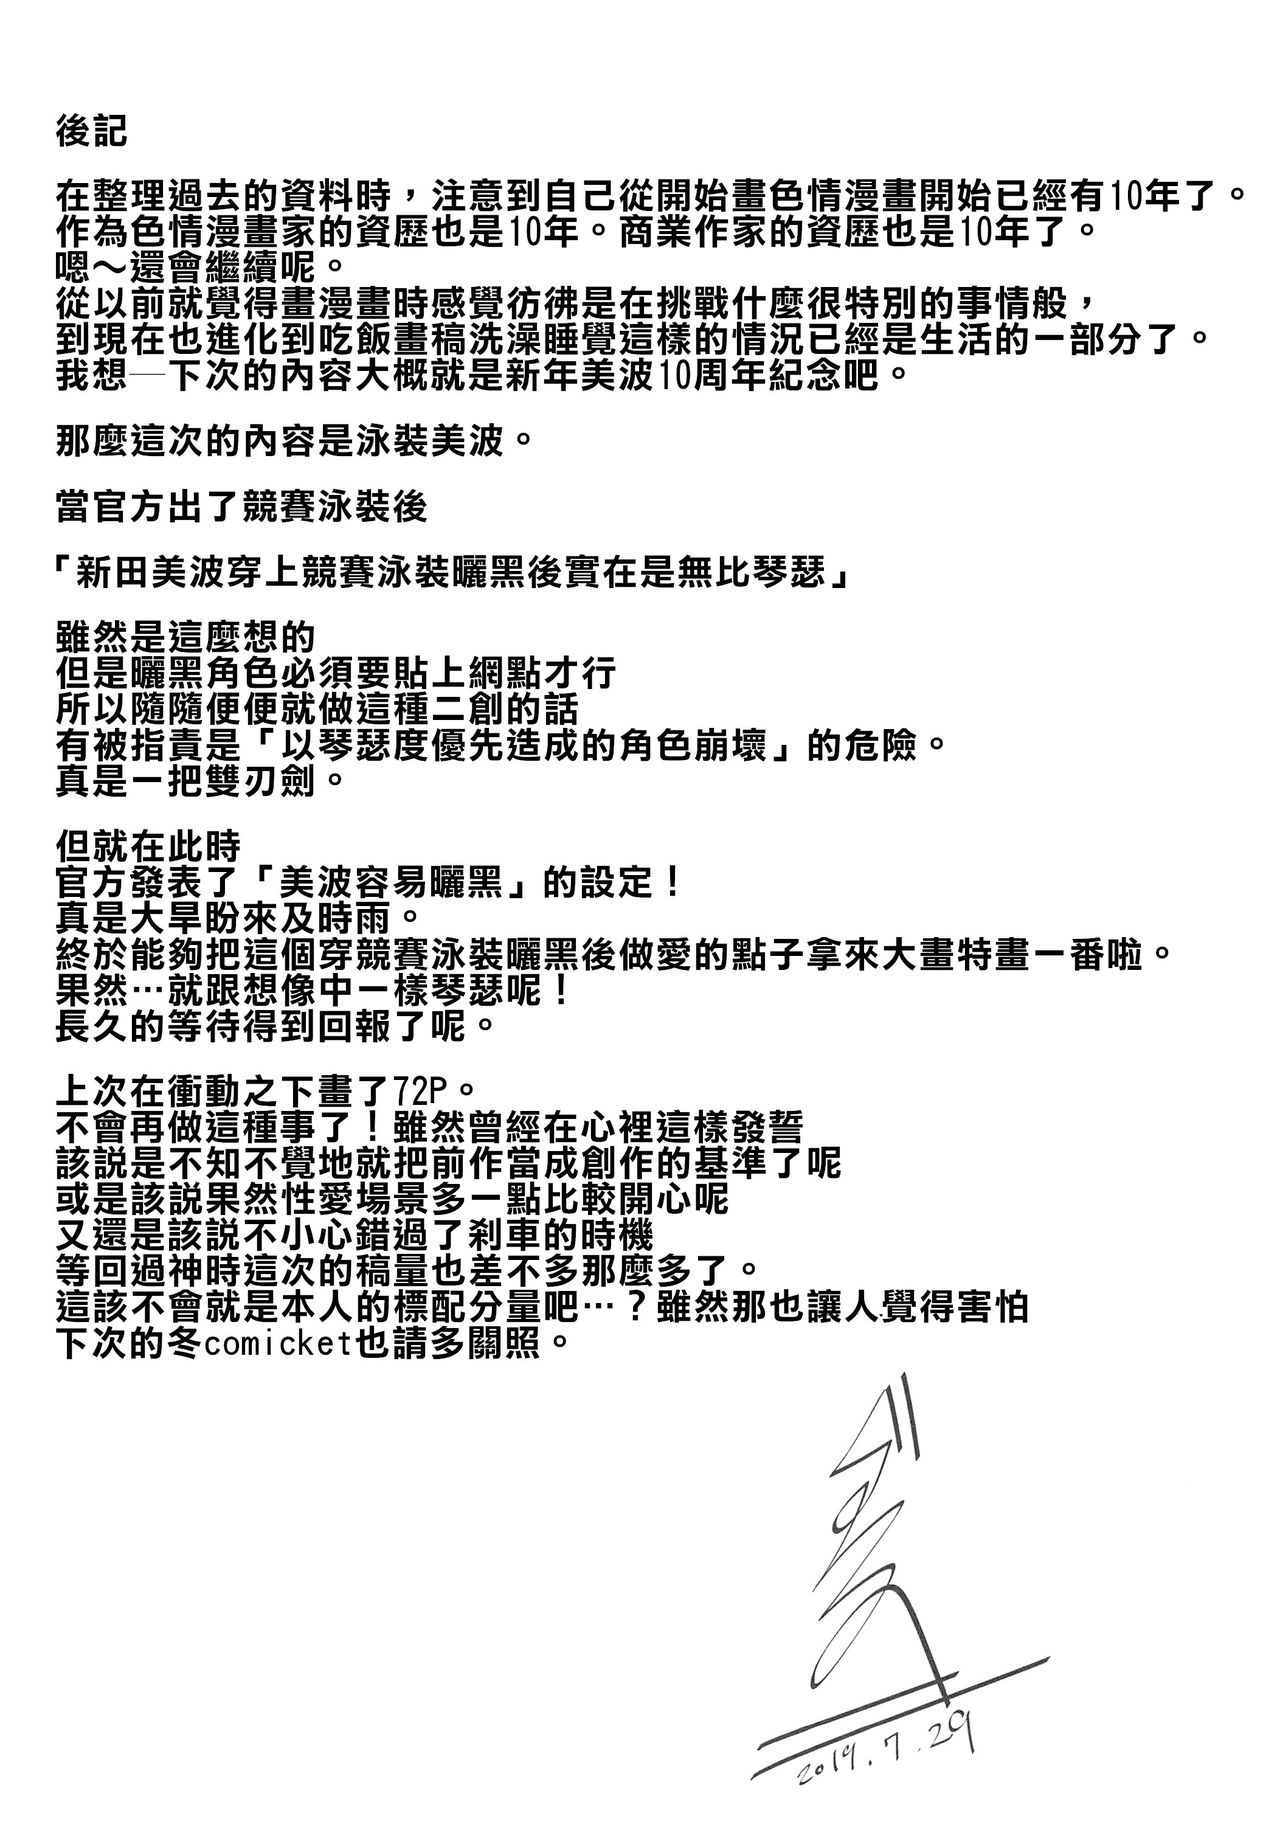 後記
在整理過去的資料時，注意到自己從開始畫色情漫畫開始已經有10年了。
作為色情漫畫家的資歷也是10年。商業作家的資歷也是10年了。
嗯～還會繼續呢。
從以前就覺得畫漫畫時感覺彷彿是在挑戰什麼很特別的事情般，
到現在也進化到吃飯畫稿洗澡睡覺這樣的情況已經是生活的一部分了。
我想─下次的內容大概就是新年美波10周年紀念吧。
那麼這次的內容是泳裝美波。
當官方出了競賽泳裝後
「新田美波穿上競賽泳裝曬黑後實在是無比琴瑟」
雖然是這麼想的
但是曬黑角色必須要貼上網點才行
所以隨隨便便就做這種二創的話
有被指責是「以琴瑟度優先造成的角色崩壞」的危險。
真是一把雙刃劍。
但就在此時
官方發表了「美波容易曬黑」的設定！
真是大旱盼來及時雨。
終於能夠把這個穿競賽泳裝曬黑後做愛的點子拿來大畫特畫一番啦。
果然…就跟想像中一樣琴瑟呢！
長久的等待得到回報了呢。
上次在衝動之下畫了72P。
不會再做這種事了！雖然曾經在心裡這樣發誓
該說是不知不覺地就把前作當成創作的基準了呢
或是該說果然性愛場景多一點比較開心呢
又還是該說不小心錯過了剎車的時機
等回過神時這次的稿量也差不多那麼多了。
這該不會就是本人的標配分量吧…？雖然那也讓人覺得害怕
下次的冬comicket也請多關照。
2019.7.29